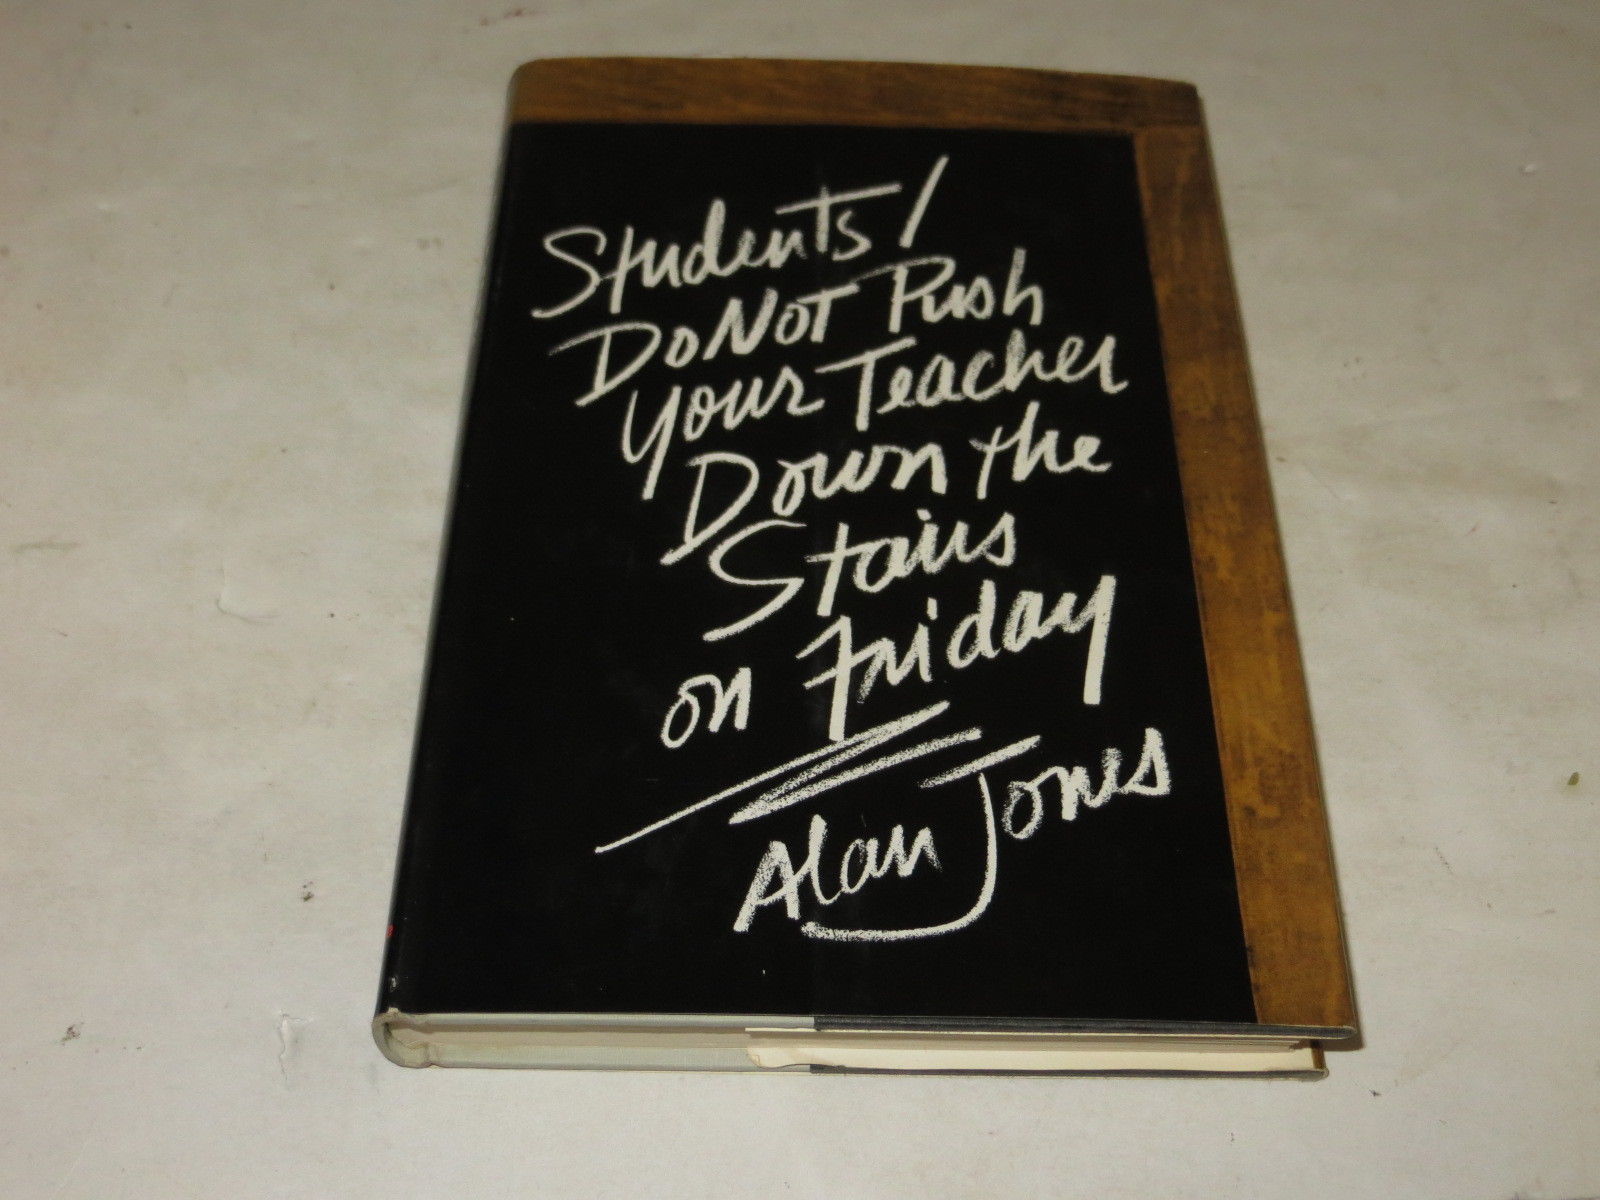 Students/
Do Not Push
Your Teacher
Down the
Stairs
on Friday
Alan Jones